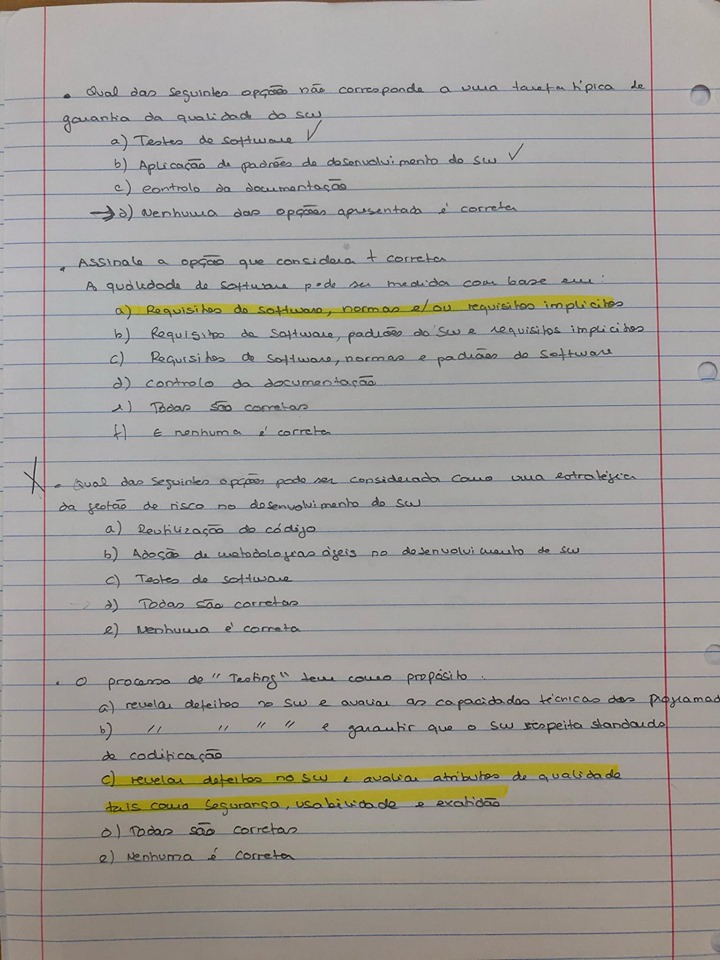 • Qual das seguintes opções não corresponde a uma tarefa típica de
garantia da qualidade do sw
a) Testes de software ✓
b) Aplicação de padrões de desenvolvimento do sw ✓
c) controlo da documentação
→ d) Nenhuma das opções apresentada é correta
• Assinale a opção que considera + correta
A qualidade de software pode ser medida com base em:
a) Requisitos do software, normas e/ou requisitos implicitos
b) Requisitos de software, padrões do sw e requisitos implicitos
c) Requisitos de software, normas e padrões do software
d) controlo da documentação
e) Todas são corretas
f) E nenhuma é correta
X • Qual das seguintes opções pode ser considerada como uma estratégica
da gestão de risco no desenvolvimento do sw
a) Reutilização do código
b) Adoção de metodologias ágeis no desenvolvimento de sw
c) Testes de software
d) Todas são corretas
e) Nenhuma é correta
• O processo de "Testing" tem como propósito.
a) revelar defeitos no sw e avaliar as capacidades técnicas dos programad
b) // // // // e garantir que o sw respeita standards
de codificação
c) revelar defeitos no sw e avaliar atributos de qualidade
tais como segurança, usabilidade e exatidão
d) Todas são corretas
e) Nenhuma é correta